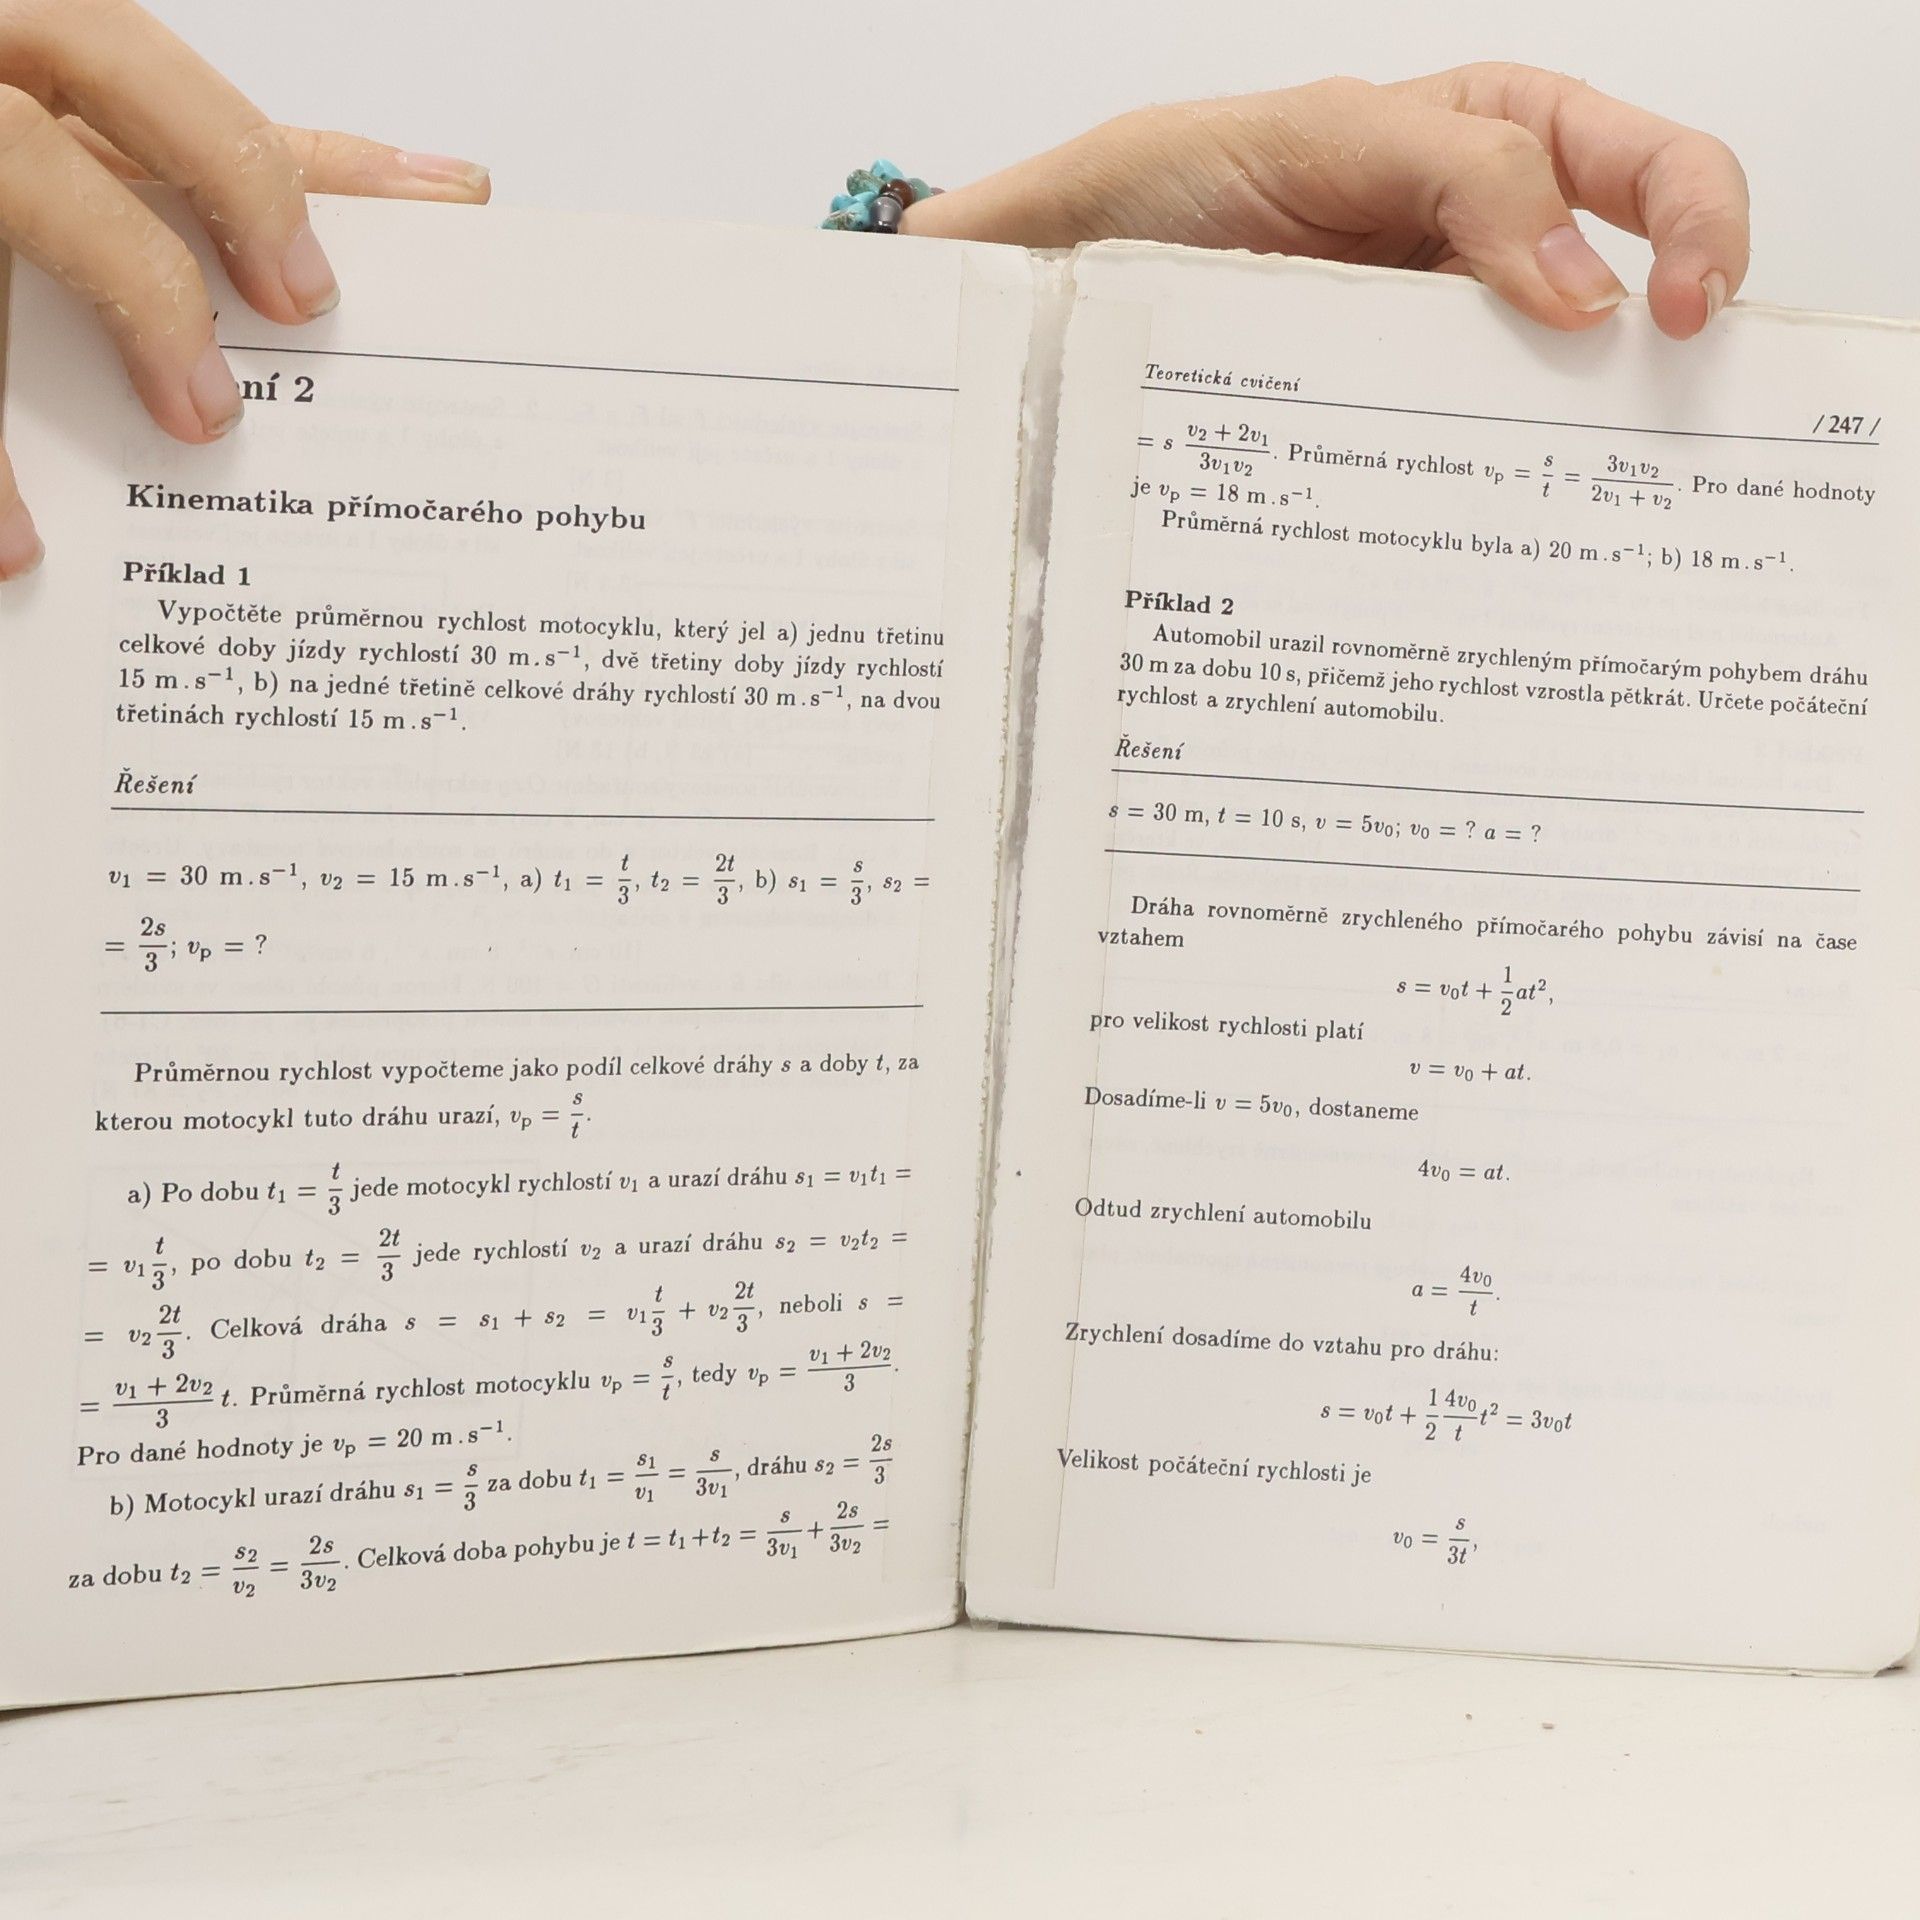 ní 2
Kinematika přímočarého pohybu
Příklad 1
Vypočtěte průměrnou rychlost motocyklu, který jel a) jednu třetinu
celkové doby jízdy rychlostí 30 m.s⁻¹, dvě třetiny doby jízdy rychlostí
15 m.s⁻¹, b) na jedné třetině celkové dráhy rychlostí 30 m.s⁻¹, na dvou
třetinách rychlostí 15 m.s⁻¹.
Řešení
v₁ = 30 m.s⁻¹, v₂ = 15 m.s⁻¹, a) t₁ = t/3, t₂ = 2t/3, b) s₁ = s/3, s₂ =
= 2s/3; vₚ = ?
Průměrnou rychlost vypočteme jako podíl celkové dráhy s a doby t, za
kterou motocykl tuto dráhu urazí, vₚ = s/t.
a) Po dobu t₁ = t/3 jede motocykl rychlostí v₁ a urazí dráhu s₁ = v₁t₁ =
= v₁ t/3, po dobu t₂ = 2t/3 jede rychlostí v₂ a urazí dráhu s₂ = v₂t₂ =
= v₂ 2t/3. Celková dráha s = s₁ + s₂ = v₁ t/3 + v₂ 2t/3, neboli s =
= (v₁ + 2v₂)/3 t. Průměrná rychlost motocyklu vₚ = s/t, tedy vₚ = (v₁ + 2v₂)/3.
Pro dané hodnoty je vₚ = 20 m.s⁻¹.
b) Motocykl urazí dráhu s₁ = s/3 za dobu t₁ = s₁/v₁ = s/3v₁, dráhu s₂ = 2s/3
za dobu t₂ = s₂/v₂ = 2s/3v₂. Celková doba pohybu je t = t₁+t₂ = s/3v₁ + 2s/3v₂ =
Teoretická cvičení
/ 247 /
= s (v₂ + 2v₁)/3v₁v₂. Průměrná rychlost vₚ = s/t = 3v₁v₂/(2v₁ + v₂). Pro dané hodnoty
je vₚ = 18 m.s⁻¹.
Průměrná rychlost motocyklu byla a) 20 m.s⁻¹; b) 18 m.s⁻¹.
Příklad 2
Automobil urazil rovnoměrně zrychleným přímočarým pohybem dráhu
30 m za dobu 10 s, přičemž jeho rychlost vzrostla pětkrát. Určete počáteční
rychlost a zrychlení automobilu.
Řešení
s = 30 m, t = 10 s, v = 5v₀; v₀ = ? a = ?
Dráha rovnoměrně zrychleného přímočarého pohybu závisí na čase
vztahem
s = v₀t + 1/2 at²,
pro velikost rychlosti platí
v = v₀ + at.
Dosadíme-li v = 5v₀, dostaneme
4v₀ = at.
Odtud zrychlení automobilu
a = 4v₀/t.
Zrychlení dosadíme do vztahu pro dráhu:
s = v₀t + 1/2 4v₀/t t² = 3v₀t
Velikost počáteční rychlosti je
v₀ = s/3t,